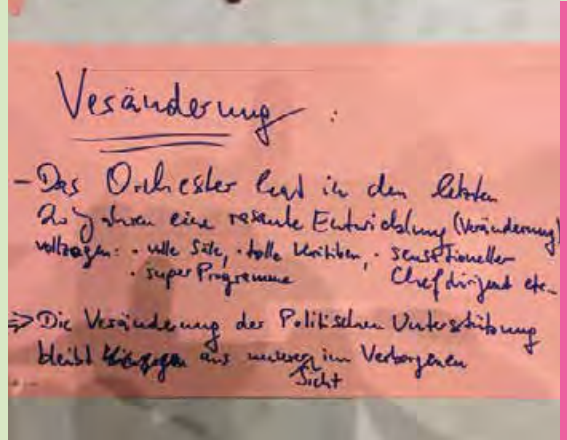 Veränderung:
- Das Orchester hat in den letzten
20 Jahren eine rasante Entwicklung (Veränderung)
vollzogen: · volle Säle, · tolle Kritiken, · sensationeller
· super Programme Chefdirigent etc.
⇒ Die Veränderung der Politischen Unterstützung
bleibt aus unserer im Verborgenen
Sicht